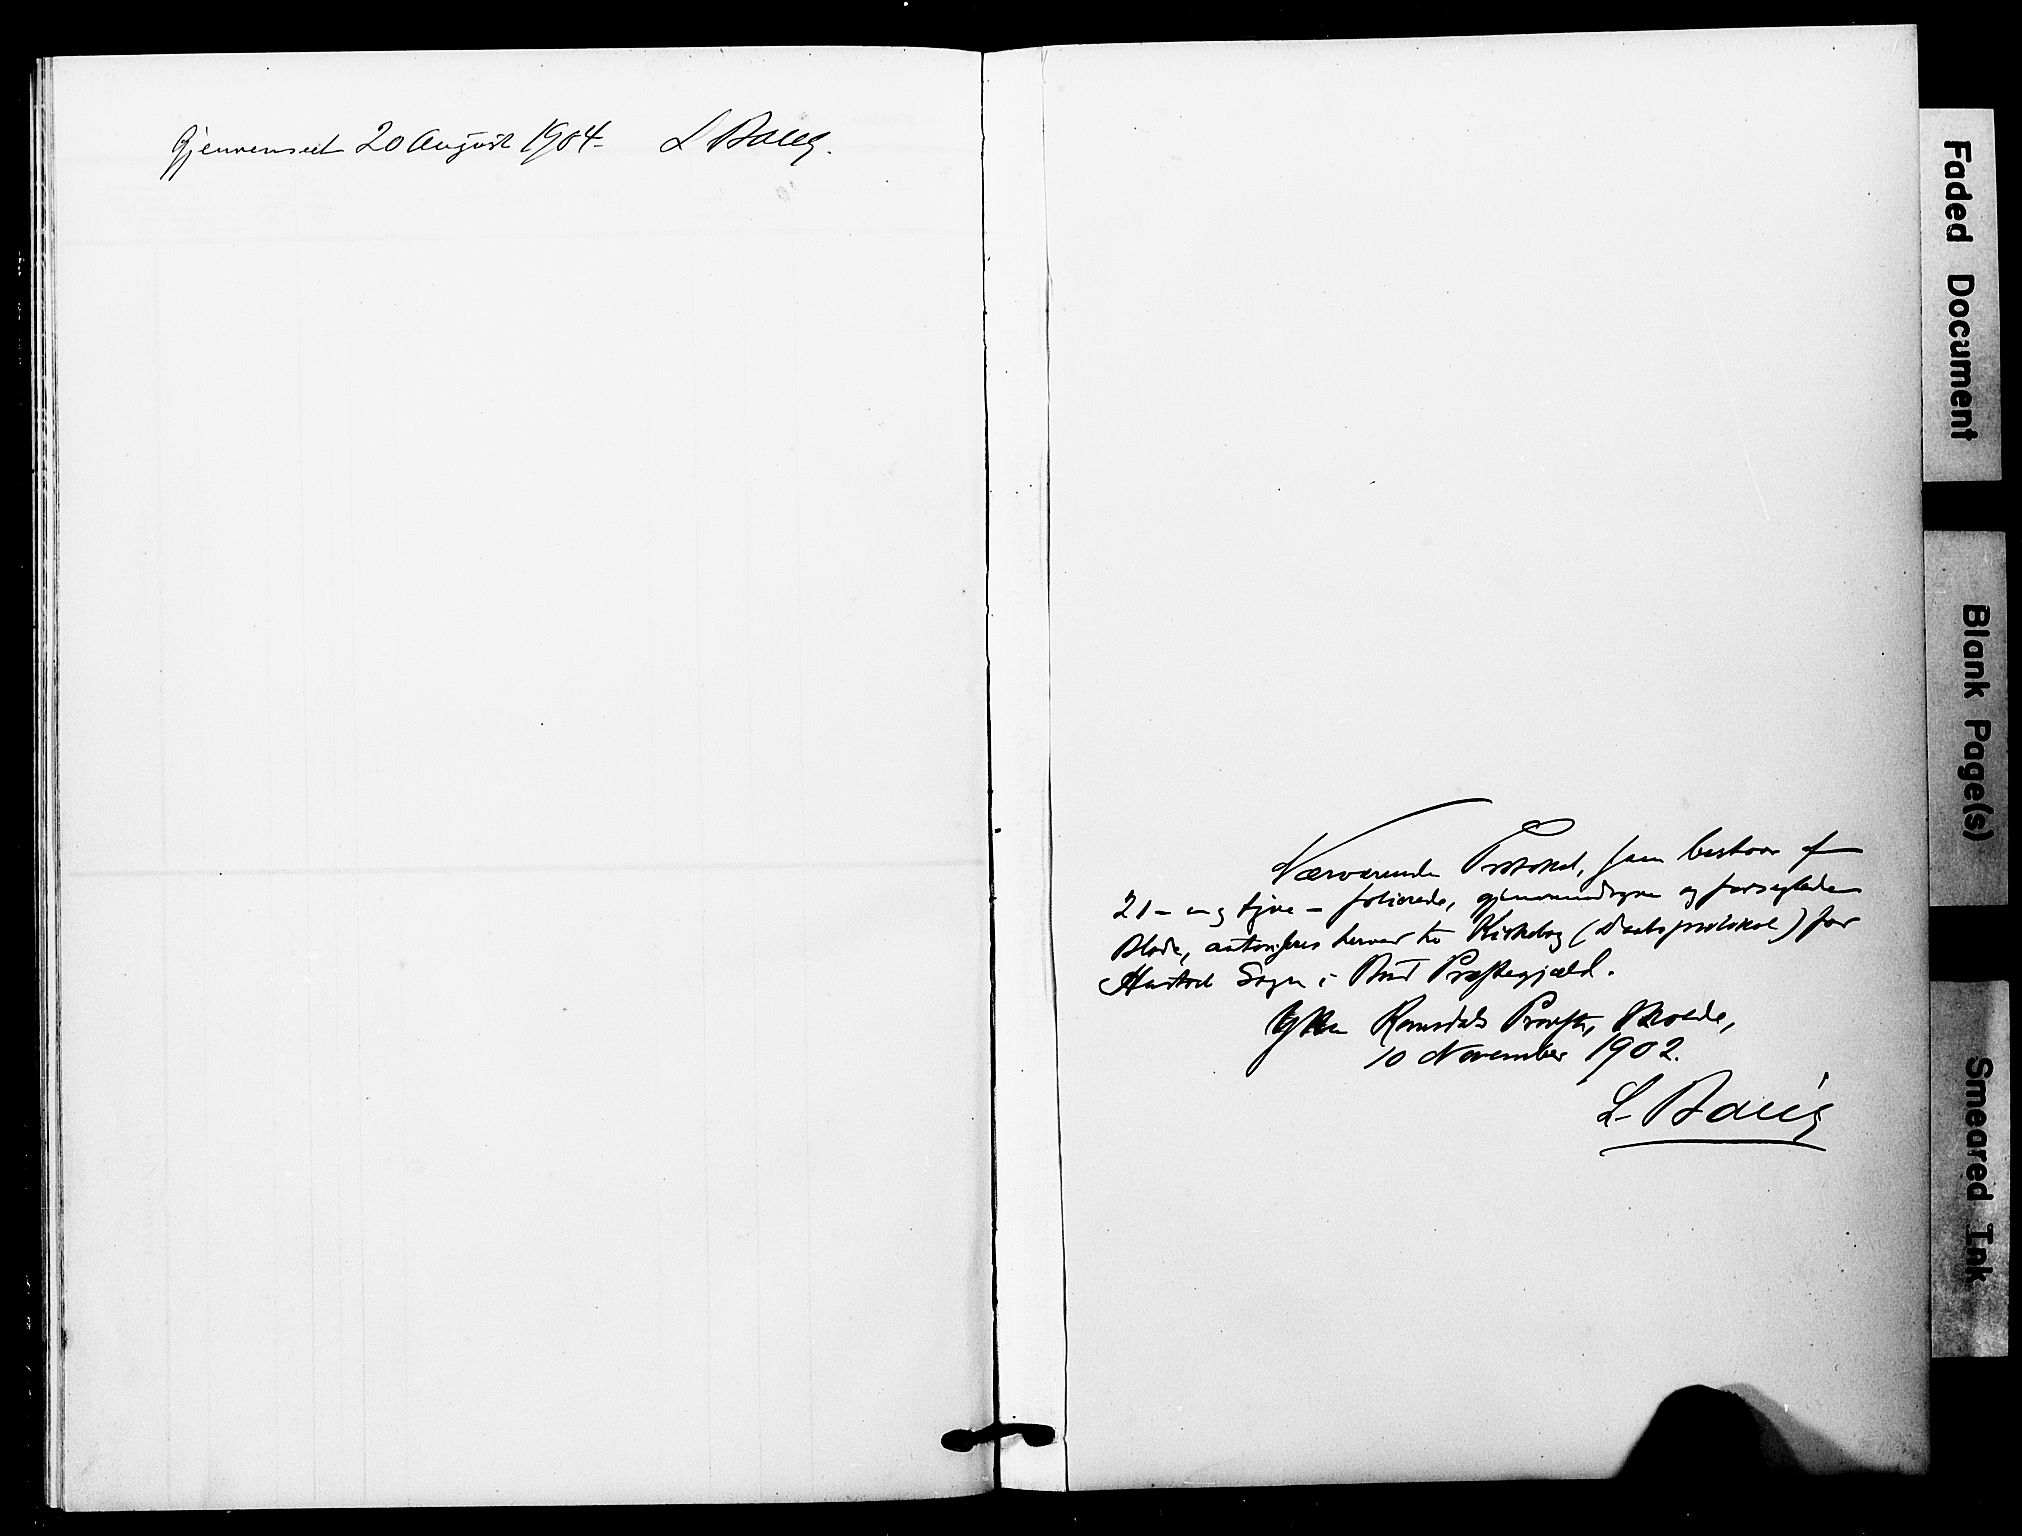 Gjennemseet 20 August 1904 L Bang.
Nærværende Protokol, som bestaar af
21 - en og tyve - folierede, gjennemdragne og forseglede
Blade, autoriseres herved til Kirkebog (Daabsprotokol) for
Hustad Sogn i Bud Præstegjæld.
Ytre Romsdals Provsti, Molde,
10 November 1902.
L. Bang
Faded Document
Blank Page(s)
Smeared Ink